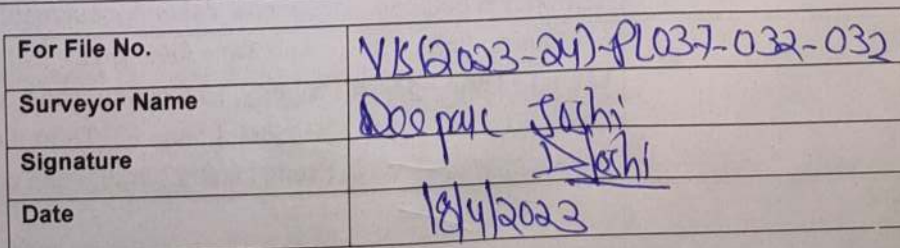 For File No. VIS(2023-24)-PL037-032-032
Surveyor Name Deepak Joshi
Signature DJoshi
Date 18/4/2023